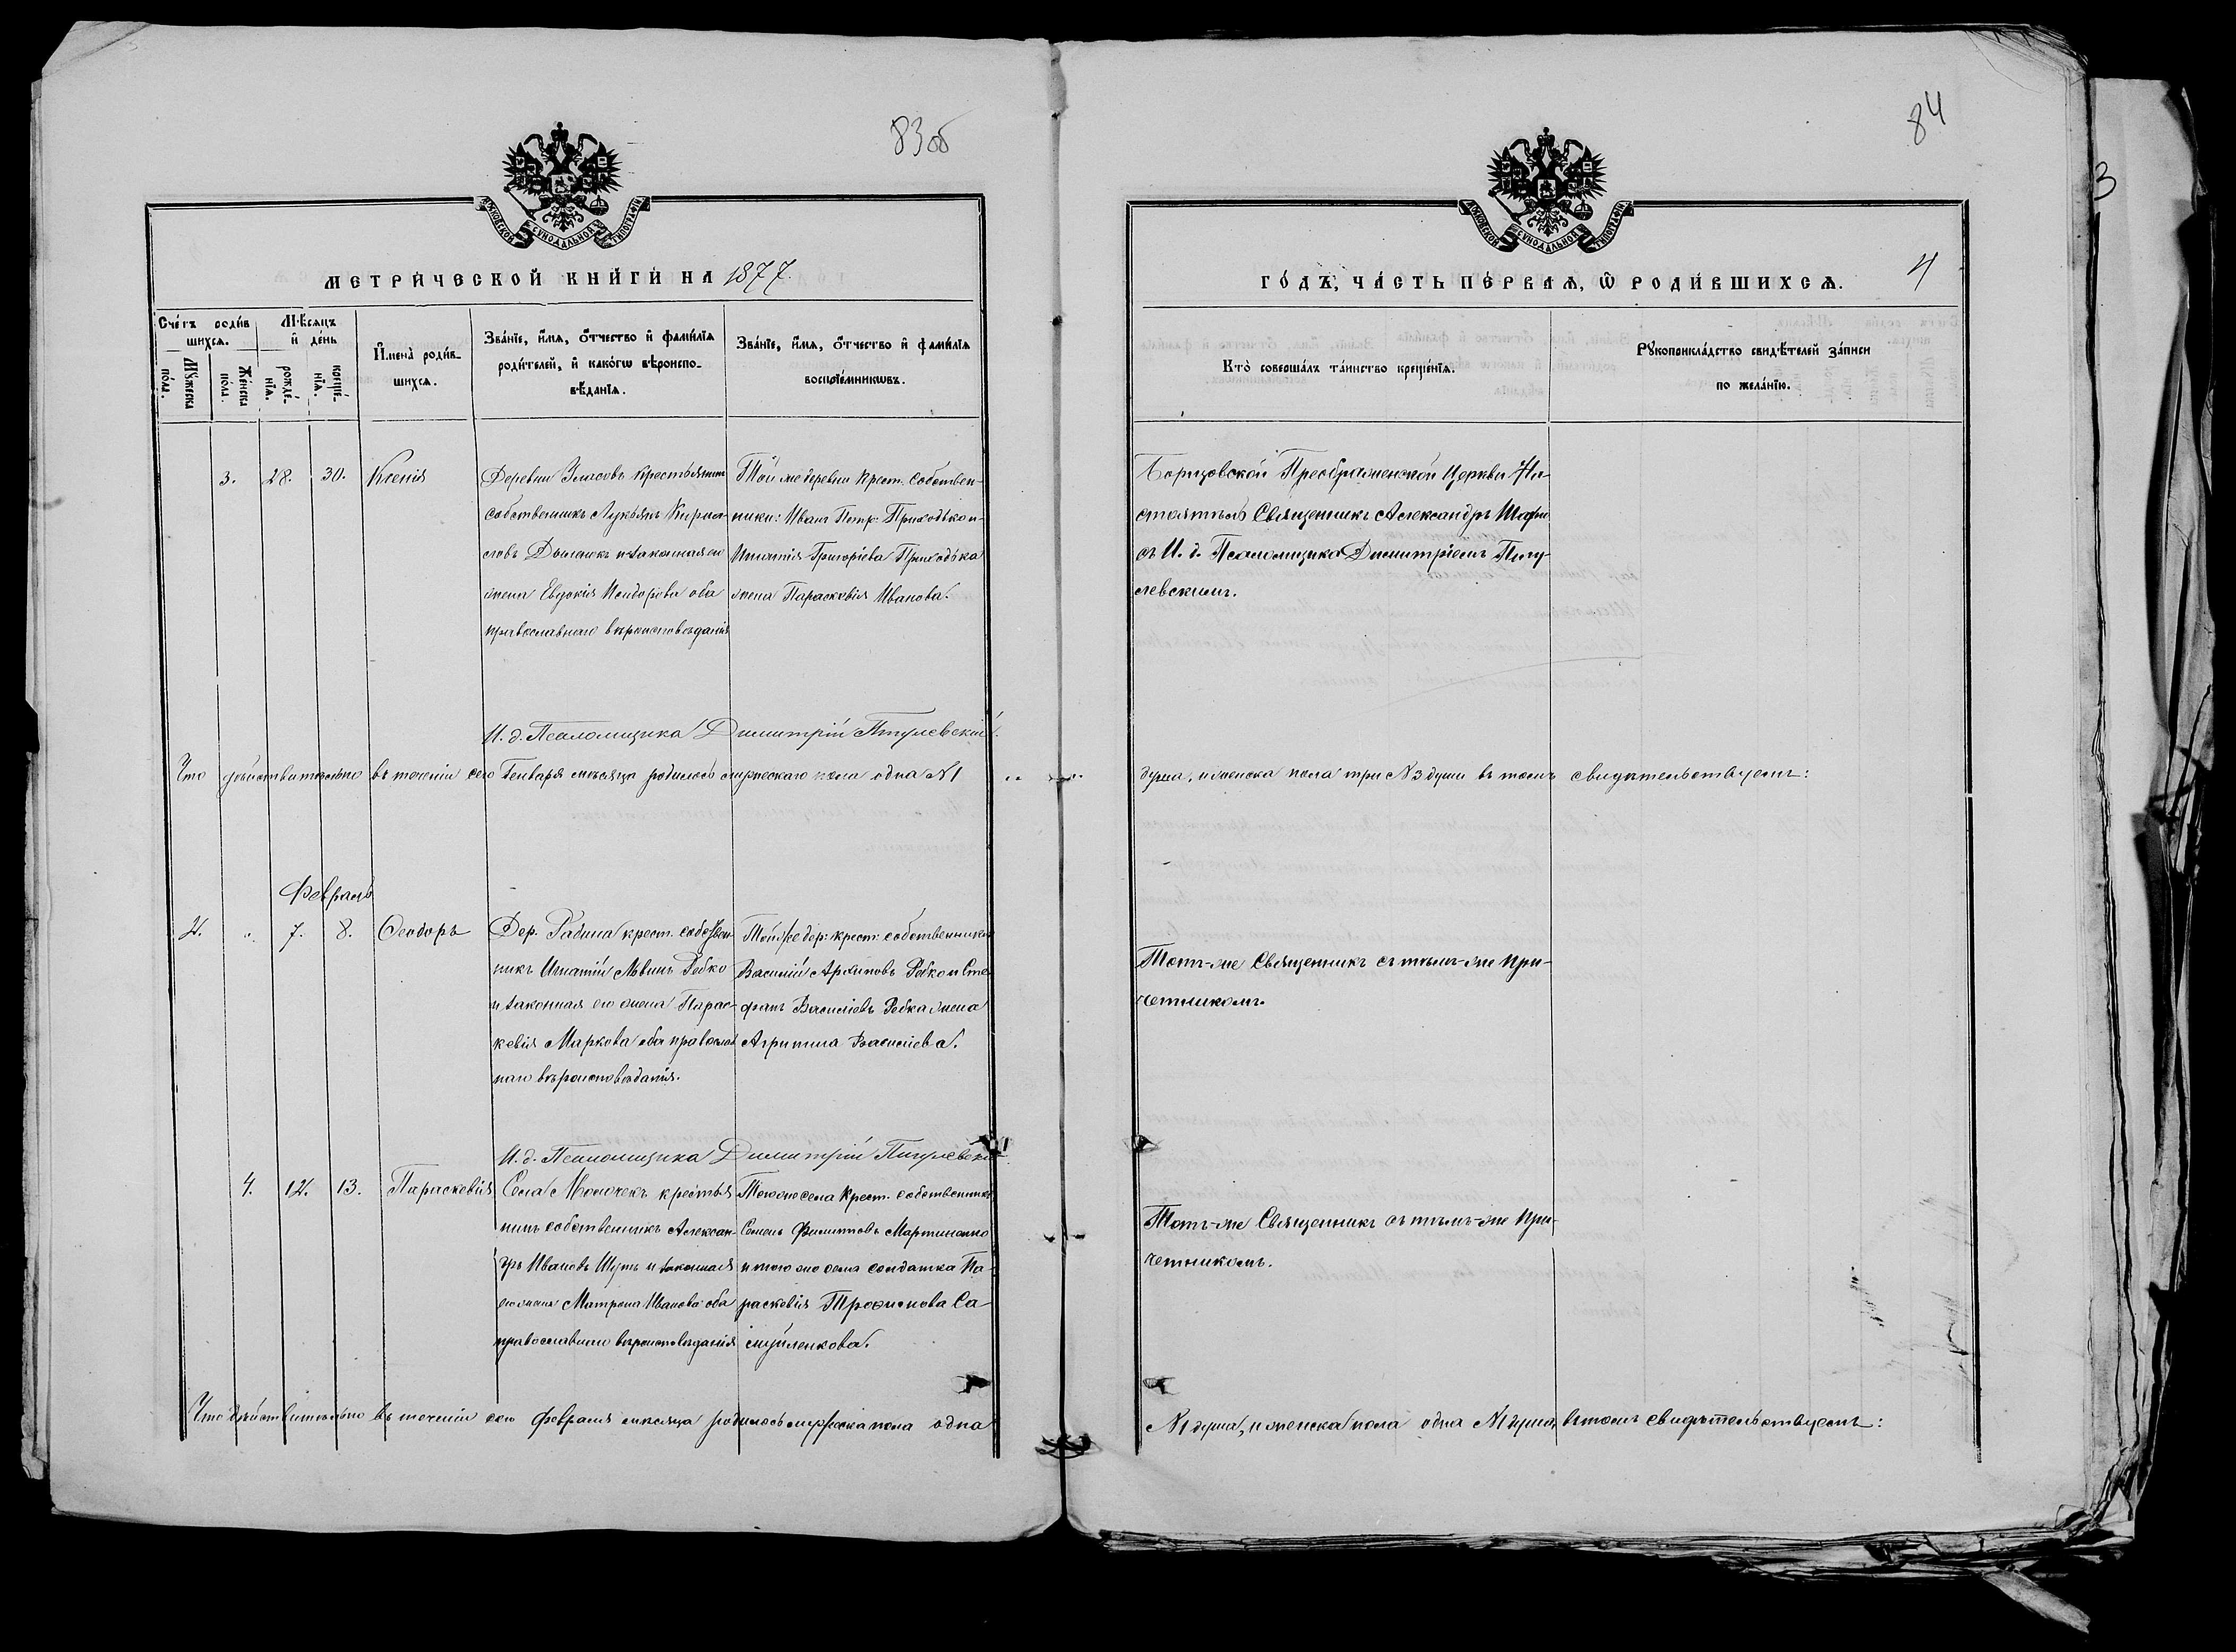 83об
МОСКОВСКОЙ СУНОДАЛЬНОЙ ТИПОГРАФІИ
МЕТРИЧЕСКОЙ КНИГИ НА 1877.
Счетъ родившихся.
Мужеска пола.
Женска пола.
Мѣсяцъ и день
рожденія.
крещенія.
Имена родившихся.
Званіе, имя, отчество и фамилія родителей, и какогѡ вѣроисповѣданія.
Званіе, имя, отчество и фамилія воспріемникѡвъ.
3. 28. 30. Ксенія
Деревни крестьянинъ
собственникъ Лукьянъ Кирил-
ловъ и законная его
жена Евдокія Исидорова оба
православнаго вѣроисповѣданія
Той же деревни крест. собствен-
ники: Иванъ Петр: Приходько и
Игнатія Григоріева Приходька
жена Параскевія Иванова.
И. д. Псаломщика Димитрій Пигулевскій.
Что дѣйствительно въ теченіи сего Генваря мѣсяца родилось мужескаго пола одна №1
Февраль
2. „ 7. 8. Ѳеодоръ
Дер. Радина крест. собствен-
никъ Игнатій Львинъ Рабко
и законная его жена Парас-
кевія Маркова оба православ-
наго вѣроисповѣданія.
Той же дер: крест: собственники
Василій Архиповъ Рабко и Сте-
фанъ Василіевъ Рабка жена
Агрипина Василіева.
И. д. Псаломщика Димитрій Пигулевскій
4. 12. 13. Параскевія
Села Молочекъ крестья-
нинъ собственникъ Алексан-
дръ Ивановъ Шутъ и законная
его жена Матрона Иванова оба
православнаго вѣроисповѣданія
Того же села крест. собственникъ
Семенъ Филиповъ Мартиненко
и того же села солдатка Па-
раскевія Трофимова Са-
муйленкова.
Что дѣйствительно въ теченіи сего февраля мѣсяца родилось мужеска пола одна
84
МОСКОВСКОЙ СУНОДАЛЬНОЙ ТИПОГРАФІИ
ГОДЪ, ЧАСТЬ ПЕРВАЯ, Ѿ РОДИВШИХСЯ.
4
Кто совершалъ таинство крещенія.
Рукоприкладство свидѣтелей записи по желанію.
Преображенской Церкви На-
стоятель Священникъ Александръ
съ И. д. Псаломщика Димитріемъ Пигу-
левскимъ.
душа, и женска пола три №3 души въ томъ свидѣтельствуемъ:
Тотъ-же Священникъ съ тѣмъ-же при-
четникомъ.
Тотъ-же Священникъ съ тѣмъ-же при-
четникомъ.
№1 душа, и женска пола одна №1 душа, въ томъ свидѣтельствуемъ:
3